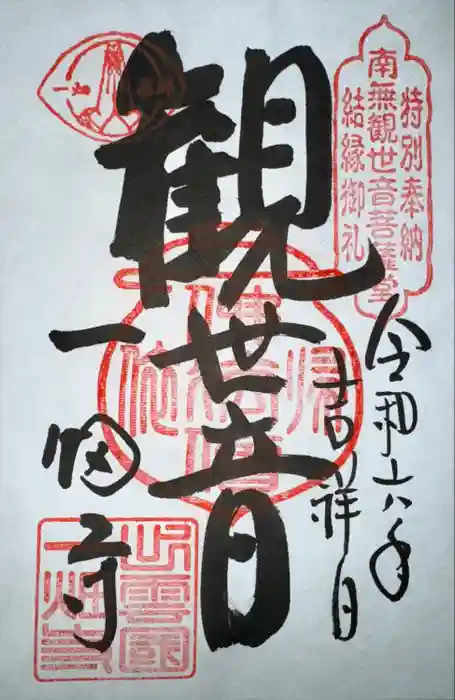 特別奉納
南無観世音菩薩堂
結縁御礼
令和六年
吉祥日
観世音
一畑寺
帰依
出雲國
一畑寺